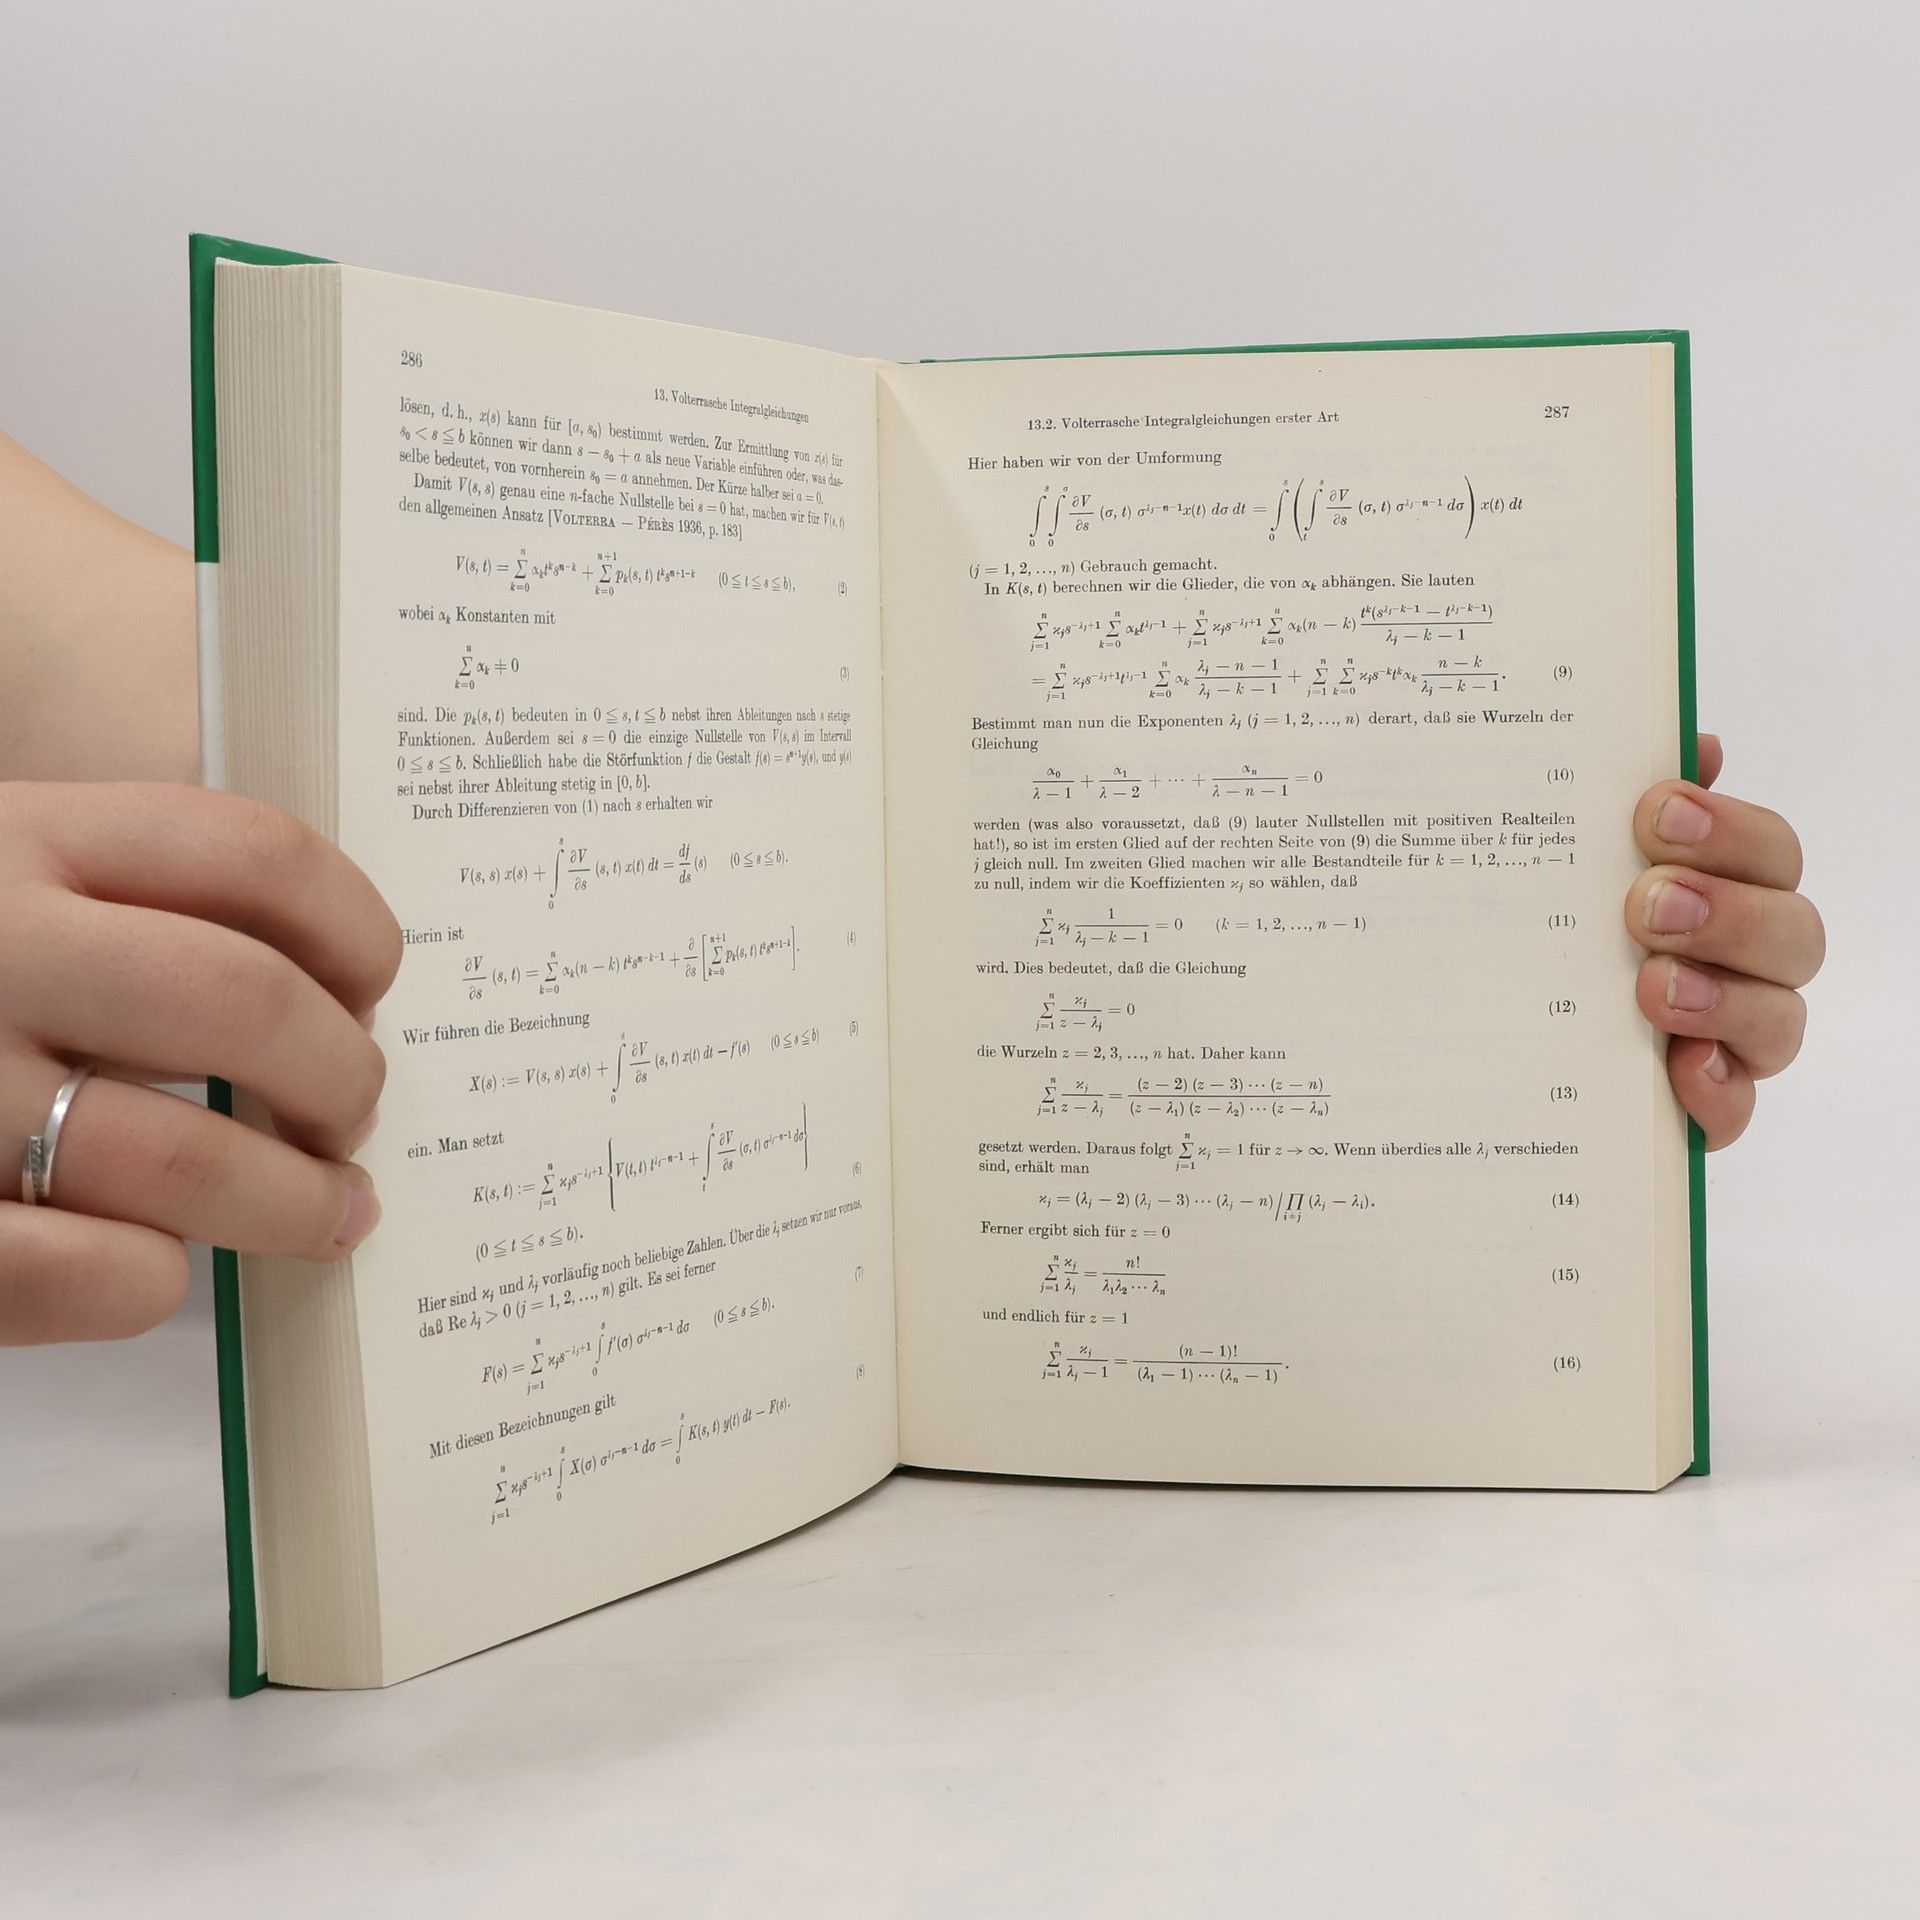 286
13. Volterrasche Integralgleichungen
lösen, d. h., x(s) kann für [a, s₀) bestimmt werden. Zur Ermittlung von x(s) für
s₀ < s ≦ b können wir dann s − s₀ + a als neue Variable einführen oder, was das-
selbe bedeutet, von vornherein s₀ = a annehmen. Der Kürze halber sei a = 0.
Damit V(s, s) genau eine n-fache Nullstelle bei s = 0 hat, machen wir für V(s, t)
den allgemeinen Ansatz [VOLTERRA — PÉRÈS 1936, p. 183]
V(s, t) = ∑_{k=0}^{n} α_k t^k s^{n−k} + ∑_{k=0}^{n+1} p_k(s, t) t^k s^{n+1−k} (0 ≦ t ≦ s ≦ b), (2)
wobei α_k Konstanten mit
∑_{k=0}^{n} α_k ≠ 0 (3)
sind. Die p_k(s, t) bedeuten in 0 ≦ s, t ≦ b nebst ihren Ableitungen nach s stetige
Funktionen. Außerdem sei s = 0 die einzige Nullstelle von V(s, s) im Intervall
0 ≦ s ≦ b. Schließlich habe die Störfunktion f die Gestalt f(s) = s^{n+1}y(s), und y(s)
sei nebst ihrer Ableitung stetig in [0, b].
Durch Differenzieren von (1) nach s erhalten wir
V(s, s) x(s) + ∫_0^s ∂V/∂s (s, t) x(t) dt = df/ds (s) (0 ≦ s ≦ b).
Hierin ist
∂V/∂s (s, t) = ∑_{k=0}^{n} α_k(n − k) t^k s^{n−k−1} + ∂/∂s [∑_{k=0}^{n+1} p_k(s, t) t^k s^{n+1−k}]. (4)
Wir führen die Bezeichnung
X(s) := V(s, s) x(s) + ∫_0^s ∂V/∂s (s, t) x(t) dt − f′(s) (0 ≦ s ≦ b) (5)
ein. Man setzt
K(s, t) := ∑_{j=1}^{n} ϰ_j s^{−λ_j+1} {V(t, t) t^{λ_j−n−1} + ∫_t^s ∂V/∂s (σ, t) σ^{λ_j−n−1} dσ} (6)
(0 ≦ t ≦ s ≦ b).
Hier sind ϰ_j und λ_j vorläufig noch beliebige Zahlen. Über die λ_j setzen wir nur voraus,
daß Re λ_j > 0 (j = 1, 2, …, n) gilt. Es sei ferner
F(s) = ∑_{j=1}^{n} ϰ_j s^{−λ_j+1} ∫_0^s f′(σ) σ^{λ_j−n−1} dσ (0 ≦ s ≦ b). (7)
Mit diesen Bezeichnungen gilt
∑_{j=1}^{n} ϰ_j s^{−λ_j+1} ∫_0^s X(σ) σ^{λ_j−n−1} dσ = ∫_0^s K(s, t) y(t) dt − F(s). (8)
13.2. Volterrasche Integralgleichungen erster Art
287
Hier haben wir von der Umformung
∫_0^s ∫_0^σ ∂V/∂s (σ, t) σ^{λ_j−n−1} x(t) dσ dt = ∫_0^s (∫_t^s ∂V/∂s (σ, t) σ^{λ_j−n−1} dσ) x(t) dt
(j = 1, 2, …, n) Gebrauch gemacht.
In K(s, t) berechnen wir die Glieder, die von α_k abhängen. Sie lauten
∑_{j=1}^{n} ϰ_j s^{−λ_j+1} ∑_{k=0}^{n} α_k t^{λ_j−1} + ∑_{j=1}^{n} ϰ_j s^{−λ_j+1} ∑_{k=0}^{n} α_k(n − k) t^k(s^{λ_j−k−1} − t^{λ_j−k−1})/(λ_j − k − 1)
= ∑_{j=1}^{n} ϰ_j s^{−λ_j+1} t^{λ_j−1} ∑_{k=0}^{n} α_k (λ_j − n − 1)/(λ_j − k − 1) + ∑_{j=1}^{n} ∑_{k=0}^{n} ϰ_j s^{−k} t^k α_k (n − k)/(λ_j − k − 1). (9)
Bestimmt man nun die Exponenten λ_j (j = 1, 2, …, n) derart, daß sie Wurzeln der
Gleichung
α₀/(λ − 1) + α₁/(λ − 2) + ⋯ + α_n/(λ − n − 1) = 0 (10)
werden (was also voraussetzt, daß (9) lauter Nullstellen mit positiven Realteilen
hat!), so ist im ersten Glied auf der rechten Seite von (9) die Summe über k für jedes
j gleich null. Im zweiten Glied machen wir alle Bestandteile für k = 1, 2, …, n − 1
zu null, indem wir die Koeffizienten ϰ_j so wählen, daß
∑_{j=1}^{n} ϰ_j 1/(λ_j − k − 1) = 0 (k = 1, 2, …, n − 1) (11)
wird. Dies bedeutet, daß die Gleichung
∑_{j=1}^{n} ϰ_j/(z − λ_j) = 0 (12)
die Wurzeln z = 2, 3, …, n hat. Daher kann
∑_{j=1}^{n} ϰ_j/(z − λ_j) = (z − 2) (z − 3) ⋯ (z − n)/((z − λ₁) (z − λ₂) ⋯ (z − λ_n)) (13)
gesetzt werden. Daraus folgt ∑_{j=1}^{n} ϰ_j = 1 für z → ∞. Wenn überdies alle λ_j verschieden
sind, erhält man
ϰ_j = (λ_j − 2) (λ_j − 3) ⋯ (λ_j − n)/∏_{i≠j} (λ_j − λ_i). (14)
Ferner ergibt sich für z = 0
∑_{j=1}^{n} ϰ_j/λ_j = n!/(λ₁λ₂ ⋯ λ_n) (15)
und endlich für z = 1
∑_{j=1}^{n} ϰ_j/(λ_j − 1) = (n − 1)!/((λ₁ − 1) ⋯ (λ_n − 1)). (16)